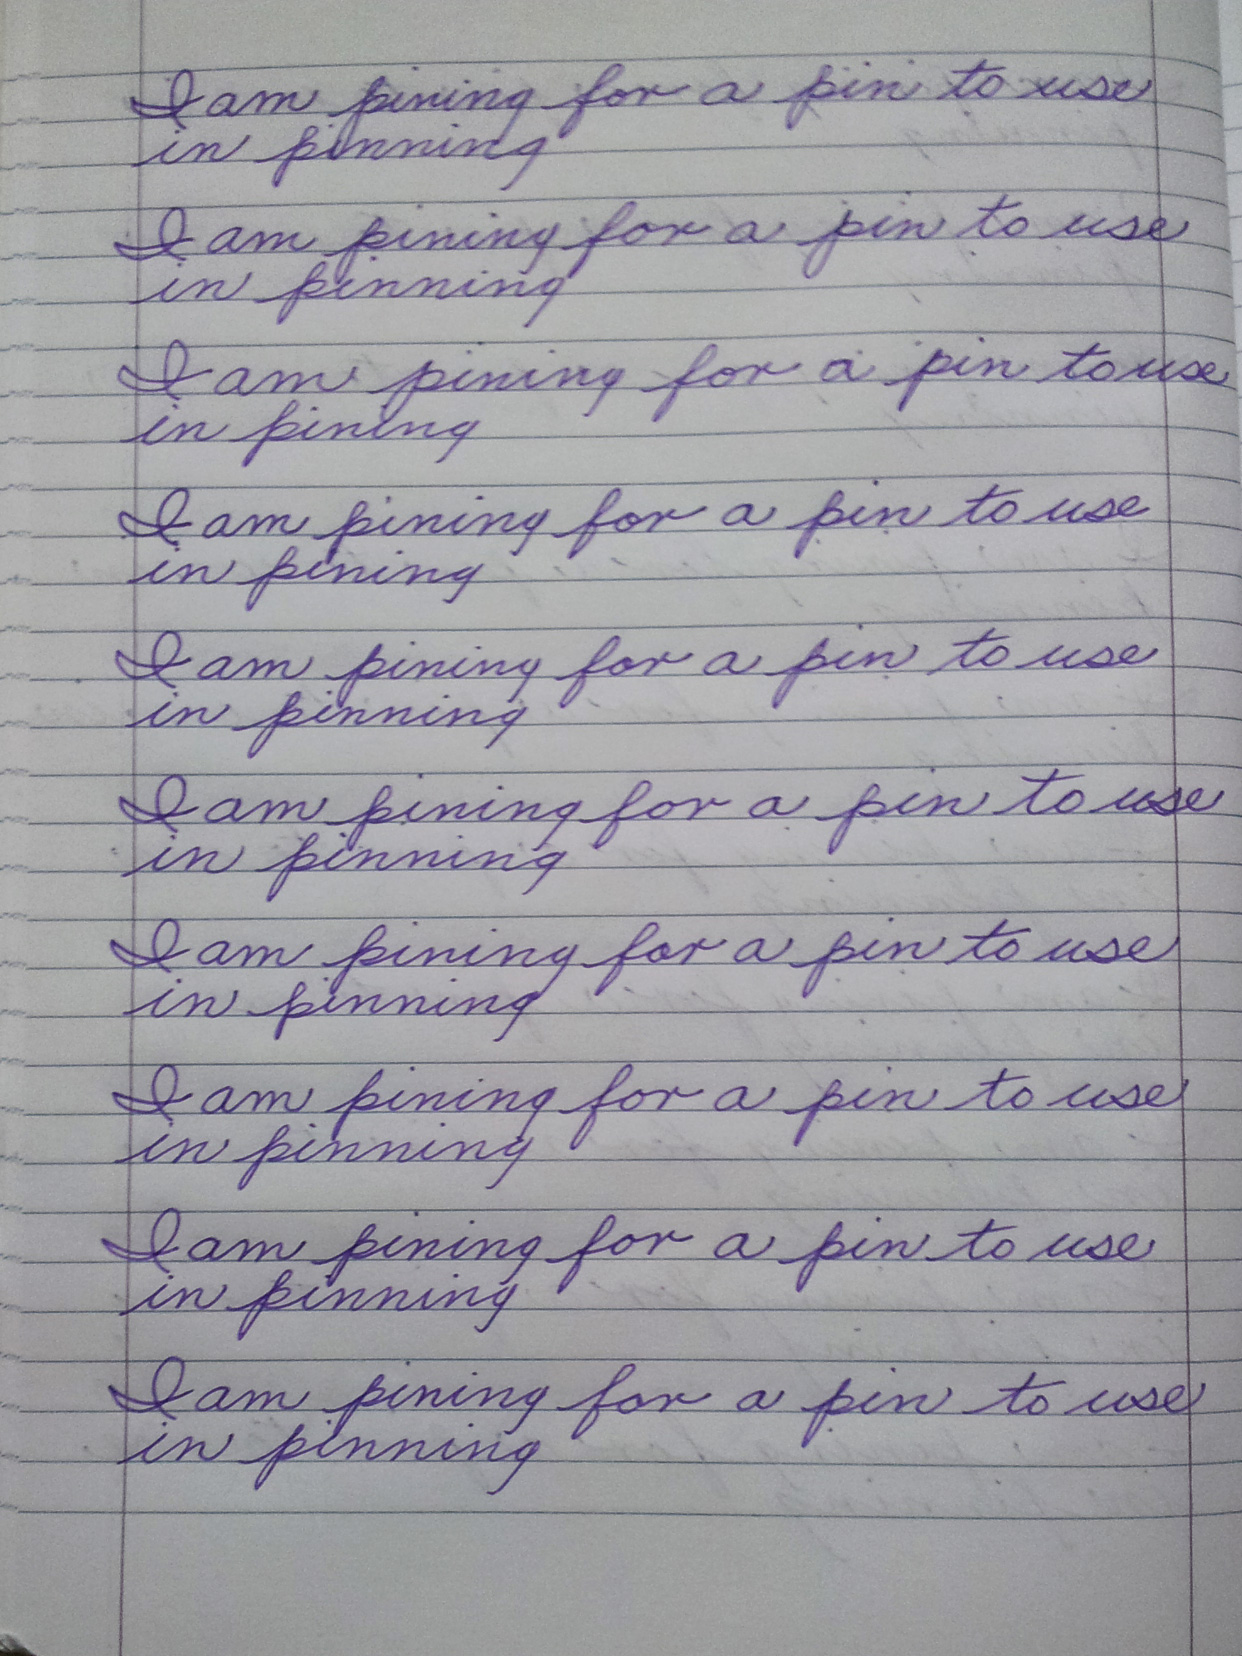 I am pining for a pin to use
in pinning
I am pining for a pin to use
in pinning
I am pining for a pin to use
in pining
I am pining for a pin to use
in pining
I am pining for a pin to use
in pinning
I am pining for a pin to use
in pinning
I am pining for a pin to use
in pinning
I am pining for a pin to use
in pinning
I am pining for a pin to use
in pinning
I am pining for a pin to use
in pinning